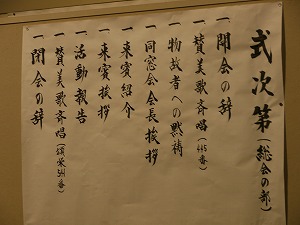 式次第(総会の部)
一、開会の辞
一、賛美歌斉唱(445番)
一、物故者への黙祷
一、同窓会会長挨拶
一、来賓紹介
一、来賓挨拶
一、活動報告
一、賛美歌斉唱(頌栄541番)
一、閉会の辞